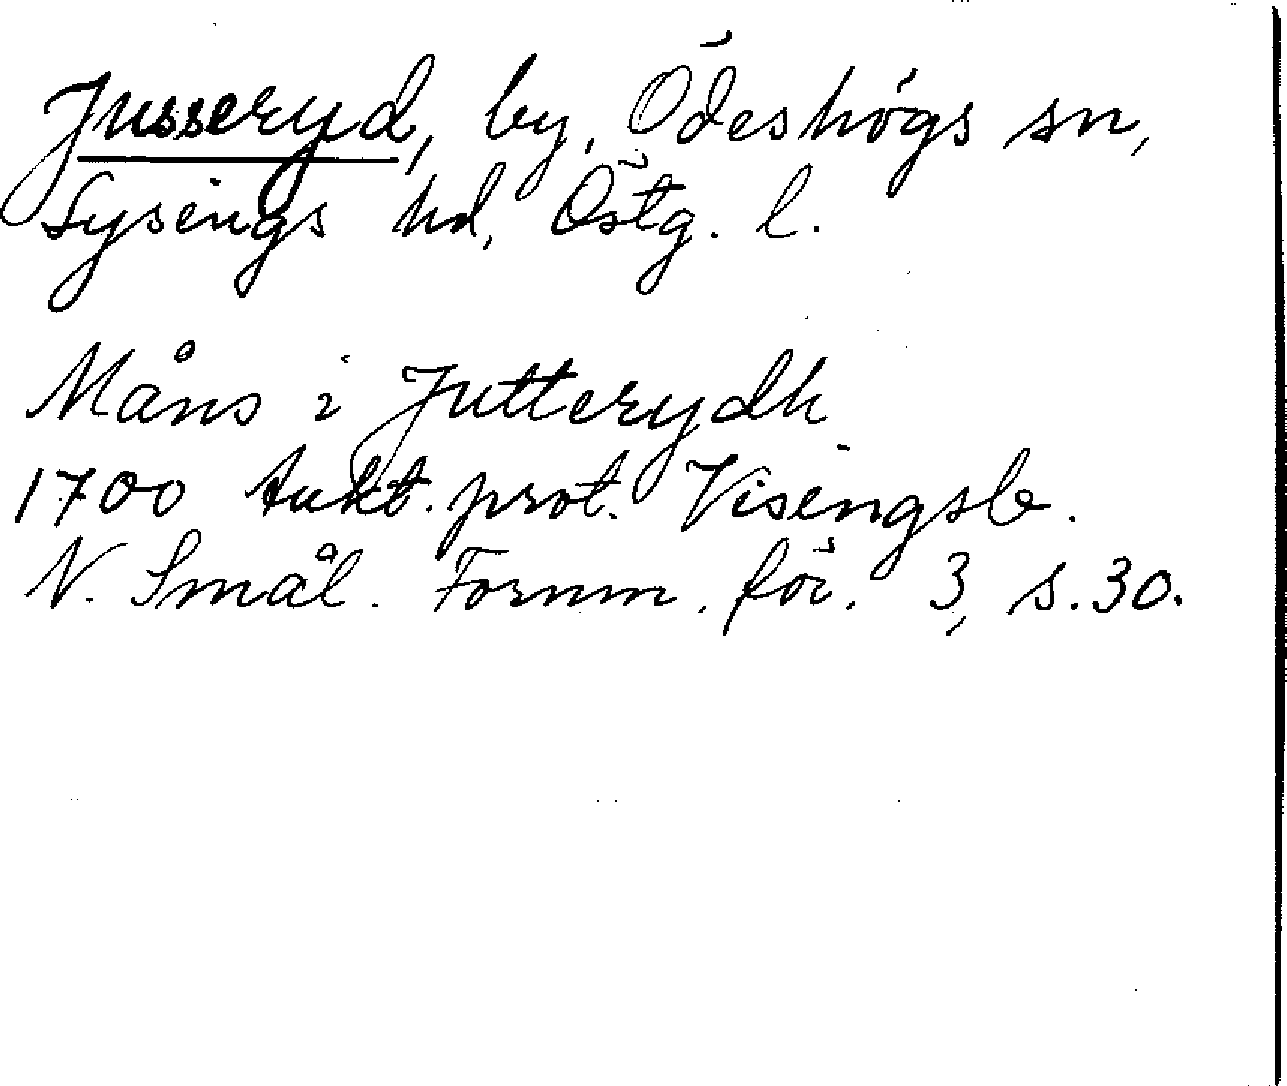 Jusseryd, by, Ödeshögs sn,
Lysings hd, Östg. l.
Måns i Jutterydh
1700 tukt. prot. Visingsb.
N. Smål. Fornm. för. 3, s. 30.